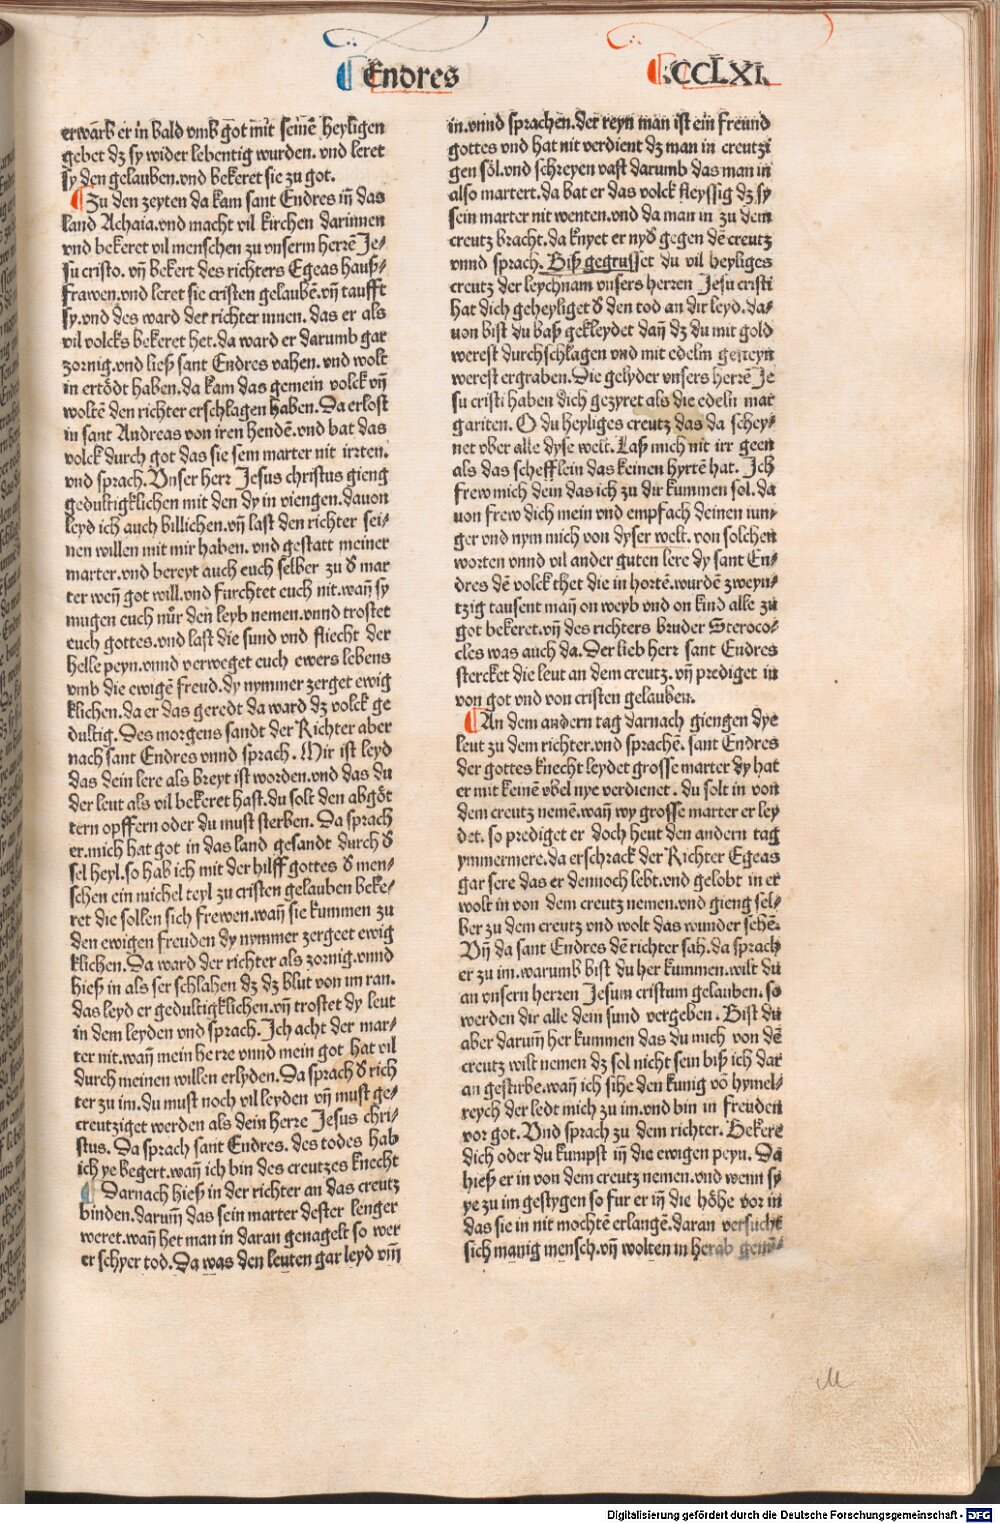 Endres
CCLXI.
erwarb er in bald vmb got mit seinē heyligen
gebet dz sy wider lebentig wurden. vnd leret
sy den gelauben.vnd bekeret sie zu got.
Zu den zeyten da kam sant Endres in̄ das
land Achaia.vnd macht vil kirchen darinnen
vnd bekeret vil menschen zu vnserm herrē Je⸗
su cristo. vn̄ bekert des richters Egeas hauß⸗
frawen.vnd leret sie cristen gelaubē.vn̄ taufft
sy.vnd des ward der richter innen. das er als
vil volcks bekeret het.da ward er darumb gar
zornig.vnd ließ sant Endres vahen. vnd wolt
in ertödt haben.da kam das gemein volck vn̄
woltē den richter erschlagen haben. Da erlost
in sant Andreas von iren hendē.vnd bat das
volck durch got das sie sein marter nit irrten.
vnd sprach. Vnser herr Jesus christus gieng
gedultigklichen mit den dy in viengen.dauon
leyd ich auch billichen.vn̄ last den richter sei⸗
nen willen mit mir haben. vnd gestatt meiner
marter.vnd bereyt auch euch selber zu d̕ mar
ter wen̄ got will.vnd furchtet euch nit.wan̄ sy
mugen euch nůr den leyb nemen.vnnd trostet
euch gottes.vnd last die sund vnd fliecht der
helle peyn.vnnd verweget euch ewers lebens
vmb die ewigē freud.dy nymmer zerget ewig
klichen.da er das geredt da ward dz volck ge
dultig. Des morgens sandt der Richter aber
nach sant Endres vnnd sprach. Mir ist leyd
das dein lere als breyt ist worden.vnd das du
der leut als vil bekeret hast.du solt den abgöt
tern opffern oder du must sterben. Da sprach
er.mich hat got in das land gesandt durch d̕
sel heyl.so hab ich mit der hilff gottes d̕ men⸗
schen ein michel teyl zu cristen gelauben beke⸗
ret die sollen sich frewen.wan̄ sie kummen zu
den ewigen freuden dy nymmer zergeet ewig
klichen. Da ward der richter als zornig.vnnd
hieß in als ser schlahen dz dz blut von im ran.
das leyd er gedultigklichen.vn̄ trostet dy leut
in dem leyden vnd sprach. Ich acht der mar⸗
ter nit.wan̄ mein herre vnnd mein got hat vil
durch meinen willen erlyden. Da sprach d̕ rich
ter zu im.du must noch vil leyden vn̄ must ge⸗
creutziget werden als dein herre Jesus chri⸗
stus. Da sprach sant Endres. des todes hab
ich ye begert.wan̄ ich bin des creutzes knecht
Darnach hieß in der richter an das creutz
binden.darum̄ das sein marter dester lenger
weret.wan̄ het man in daran genagelt so wer
er schyer tod. Da was den leuten gar leyd vm̄
in.vnnd sprachen.der reyn man ist ein freund
gottes vnd hat nit verdient dz man in creutzi
gen söl.vnd schreyen vast darumb das man in
also martert.da bat er das volck fleyssig dz sy
sein marter nit wenten.vnd da man in zu dem
creutz bracht.da knyet er nyd̕ gegen dē creutz
vnnd sprach. Biß gegrusset du vil heyliges
creutz der leychnam vnsers herren Jesu cristi
hat dich geheyliget d̕ den tod an dir leyd.da⸗
uon bist du baß gekleydet dan̄ dz du mit gold
werest durchschlagen vnd mit edelm gesteyn
werest ergraben. Die gelyder vnsers herrē Je
su cristi haben dich gezyret als die edeln mar
gariten. O du heyliges creutz das da schey⸗
net vber alle dyse welt. Laß mich nit irr geen
als das schefflein das keinen hyrtē hat. Ich
frew mich dein das ich zu dir kummen sol. da
uon frew dich mein vnd empfach deinen iun⸗
ger vnd nym mich von dyser welt. von solchen
worten vnnd vil ander guten lere dy sant En⸗
dres dē volck thet die in hortē.wurdē zweyn⸗
tzig tausent man̄ on weyb vnd on kind alle zu
got bekeret.vn̄ des richters bruder Steroco⸗
cles was auch da. Der lieb herr sant Endres
stercket die leut an dem creutz. vn̄ prediget in
von got vnd von cristen gelauben.
An dem andern tag darnach giengen dye
leut zu dem richter.vnd sprachē. sant Endres
der gottes knecht leydet grosse marter dy hat
er mit keinē vbel nye verdienet. du solt in von
dem creutz nemē.wan̄ wy grosse marter er ley
det. so prediget er doch heut den andern tag
ymmermere.da erschrack der Richter Egeas
gar sere das er dennoch lebt.vnd gelobt in er
wolt in von dem creutz nemen.vnd gieng sel⸗
ber zu dem creutz vnd wolt das wunder sehē.
Vn̄ da sant Endres dē richter sah.da sprach
er zu im.warumb bist du her kummen.wilt du
an vnsern herren Jesum cristum gelauben. so
werden dir alle dein sund vergeben. Bist du
aber darum̄ her kummen das du mich von dē
creutz wilt nemen dz sol nicht sein biß ich dar
an gestirbe.wan̄ ich sihe den kunig vō hymel⸗
reych der ledt mich zu im.vnd bin in freuden
vor got. Vnd sprach zu dem richter. Bekere
dich oder du kumpst in̄ die ewigen peyn. Da
hieß er in von dem creutz nemen.vnd wenn sy
ye zu im gestygen so fur er in̄ die höhe vor in
das sie in nit mochtē erlangē.daran versucht
sich manig mensch.vn̄ wolten in herab genū⸗
M
Digitalisierung gefördert durch die Deutsche Forschungsgemeinschaft - DFG